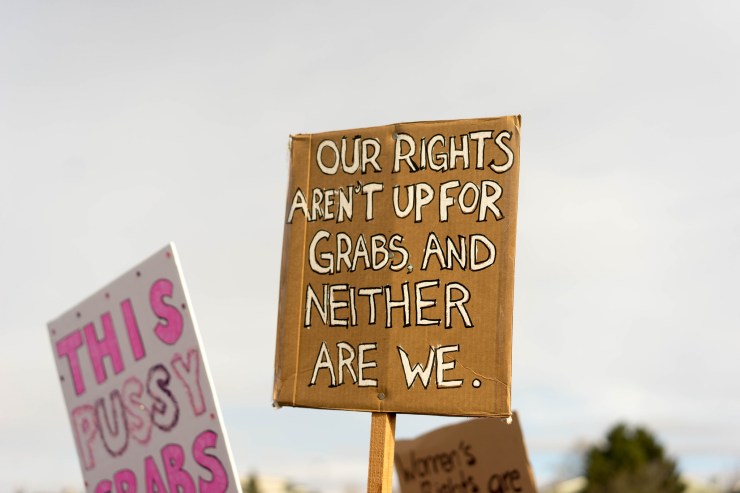 OUR RIGHTS
AREN'T UP FOR
GRABS, AND
NEITHER
ARE WE.
THIS
PUSSY
GRABS
Women's
Rights are